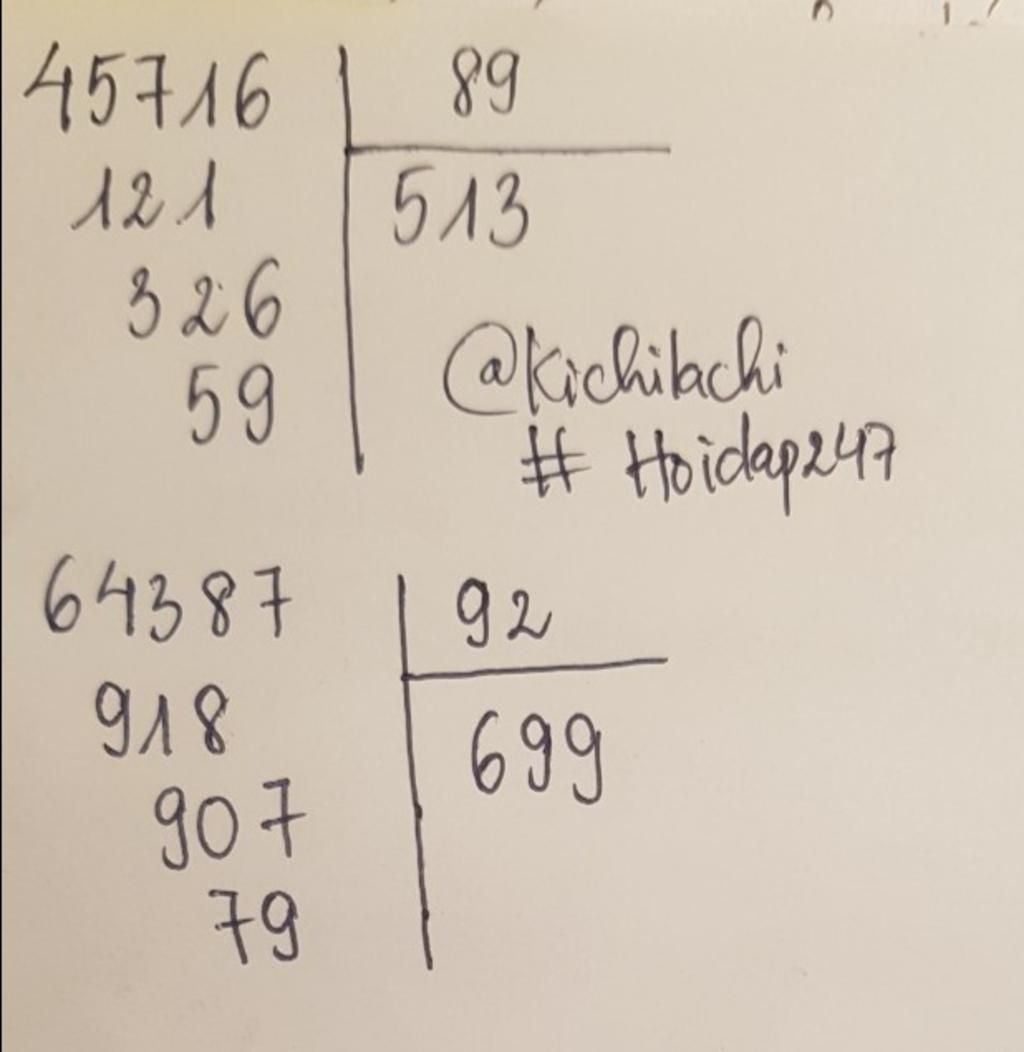 45716 89
121 513
326
59
@kichibachi
# Hoidap247
64387 92
918 699
907
79